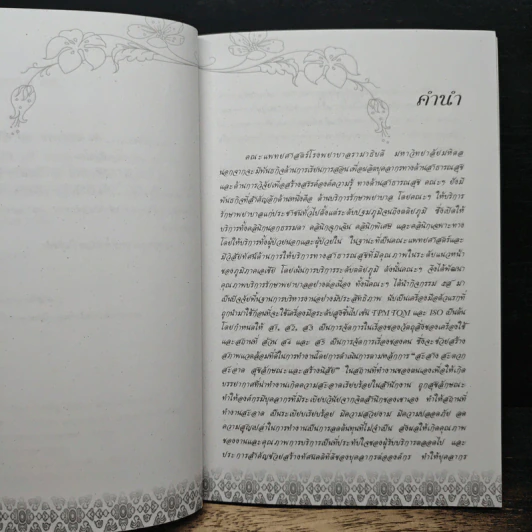 คำนำ
คณะแพทยศาสตร์โรงพยาบาลรามาธิบดี มหาวิทยาลัยมหิดล
นอกจากจะมีพันธกิจด้านการเรียนการสอนเพื่อผลิตบุคลากรทางด้านสาธารณสุข
และด้านการวิจัยเพื่อสร้างสรรค์องค์ความรู้ ทางด้านสาธารณสุข คณะฯ ยังมี
พันธกิจที่สำคัญอีกด้านหนึ่งคือ ด้านบริการรักษาพยาบาล โดยคณะฯ ให้บริการ
รักษาพยาบาลแก่ประชาชนทั่วไปตั้งแต่ระดับปฐมภูมิจนถึงตติยภูมิ ซึ่งเปิดให้
บริการทั้งคลินิกนอกธรรมดา คลินิกฉุกเฉิน คลินิกพิเศษ และคลินิกเฉพาะทาง
โดยให้บริการทั้งผู้ป่วยนอกและผู้ป่วยใน ในฐานะที่เป็นคณะแพทยศาสตร์และ
มีวิสัยทัศน์ด้านการให้บริการทางสาธารณสุขที่มีคุณภาพในระดับแนวหน้า
ของภูมิภาคเอเชีย โดยเน้นการบริการระดับตติยภูมิ ดังนั้นคณะฯ จึงได้พัฒนา
คุณภาพบริการรักษาพยาบาลอย่างต่อเนื่อง ทั้งนี้คณะฯ ได้นำกิจกรรม 5ส มา
เป็นปัจจัยพื้นฐานการบริหารงานอย่างมีประสิทธิภาพ นับเป็นเครื่องมือตัวแรกที่
ถูกนำมาใช้ก่อนที่จะใช้เครื่องมือระดับสูงขึ้นไป เช่น TPM TQM และ ISO เป็นต้น
โดยกำหนดให้ ส1, ส2, ส3 เป็นการจัดการในเรื่องของวัตถุสิ่งของเครื่องใช้
และสถานที่ ส่วน ส4 และ ส5 เป็นการจัดการเรื่องของคน ซึ่งจะช่วยสร้าง
สภาพแวดล้อมที่ดีในการทำงานโดยการดำเนินการตามหลักการ "สะสาง สะดวก
สะอาด สุขลักษณะและสร้างนิสัย" ในสถานที่ทำงานของตนเองเพื่อให้เกิด
บรรยากาศที่น่าทำงานเกิดความสะอาดเรียบร้อยในสำนักงาน ถูกสุขลักษณะ
ทำให้องค์กรมีบุคลากรที่มีระเบียบวินัยจากจิตสำนึกของเขาเอง ทำให้สถานที่
ทำงานสะอาด เป็นระเบียบเรียบร้อย มีความสวยงาม มีความปลอดภัย ลด
ความสูญเปล่าในการทำงานเป็นการลดต้นทุนที่ไม่จำเป็น ส่งผลให้เกิดคุณภาพ
ของงานและคุณภาพการบริการเป็นที่ประทับใจของผู้รับบริการตลอดไป และ
ประการสำคัญช่วยสร้างทัศนคติที่ดีของบุคลากรต่อองค์กร ทำให้บุคลากร